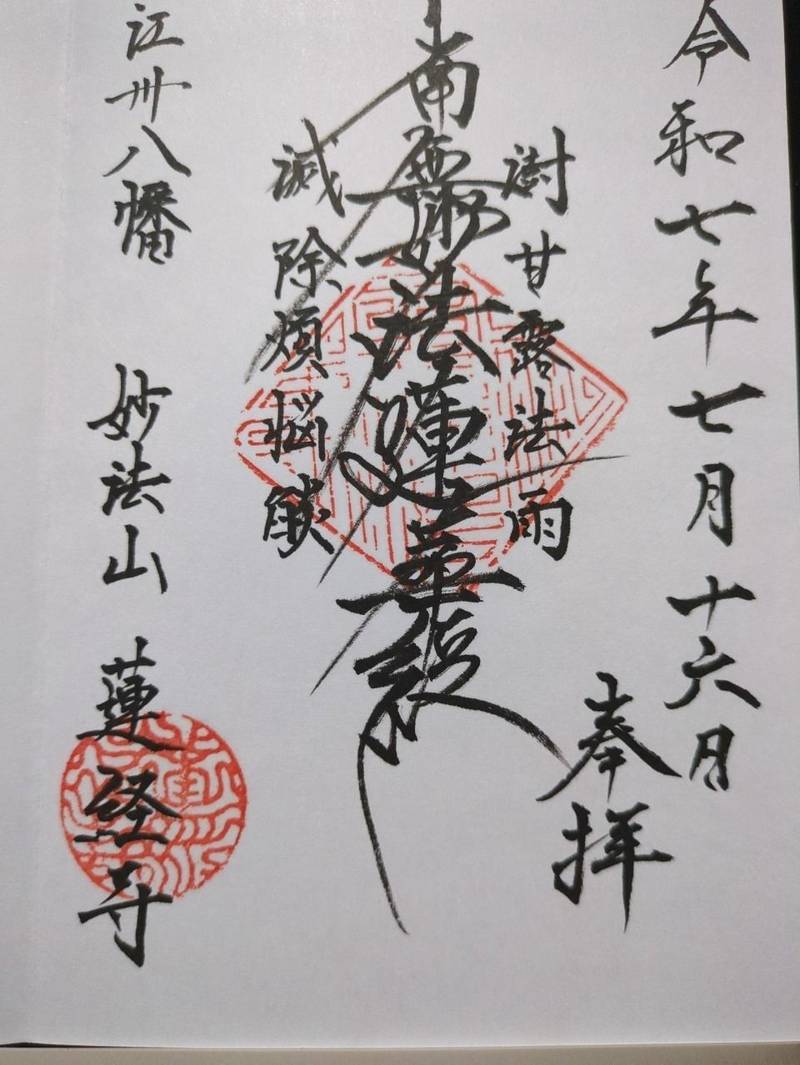 令和七年七月十六日
奉拝
澍甘露法雨
南無妙法蓮華経
滅除煩悩燄
江州八幡 妙法山 蓮経寺